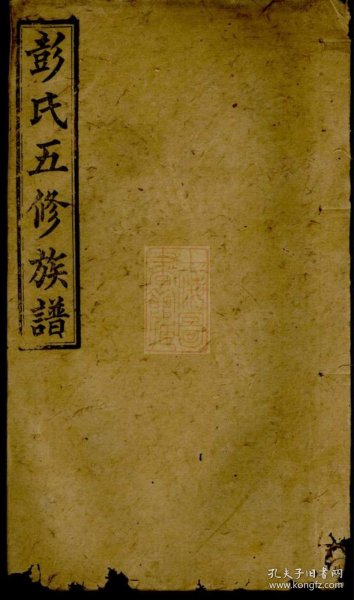 彭氏五修族譜
孔夫子旧书网
www.kongfz.com